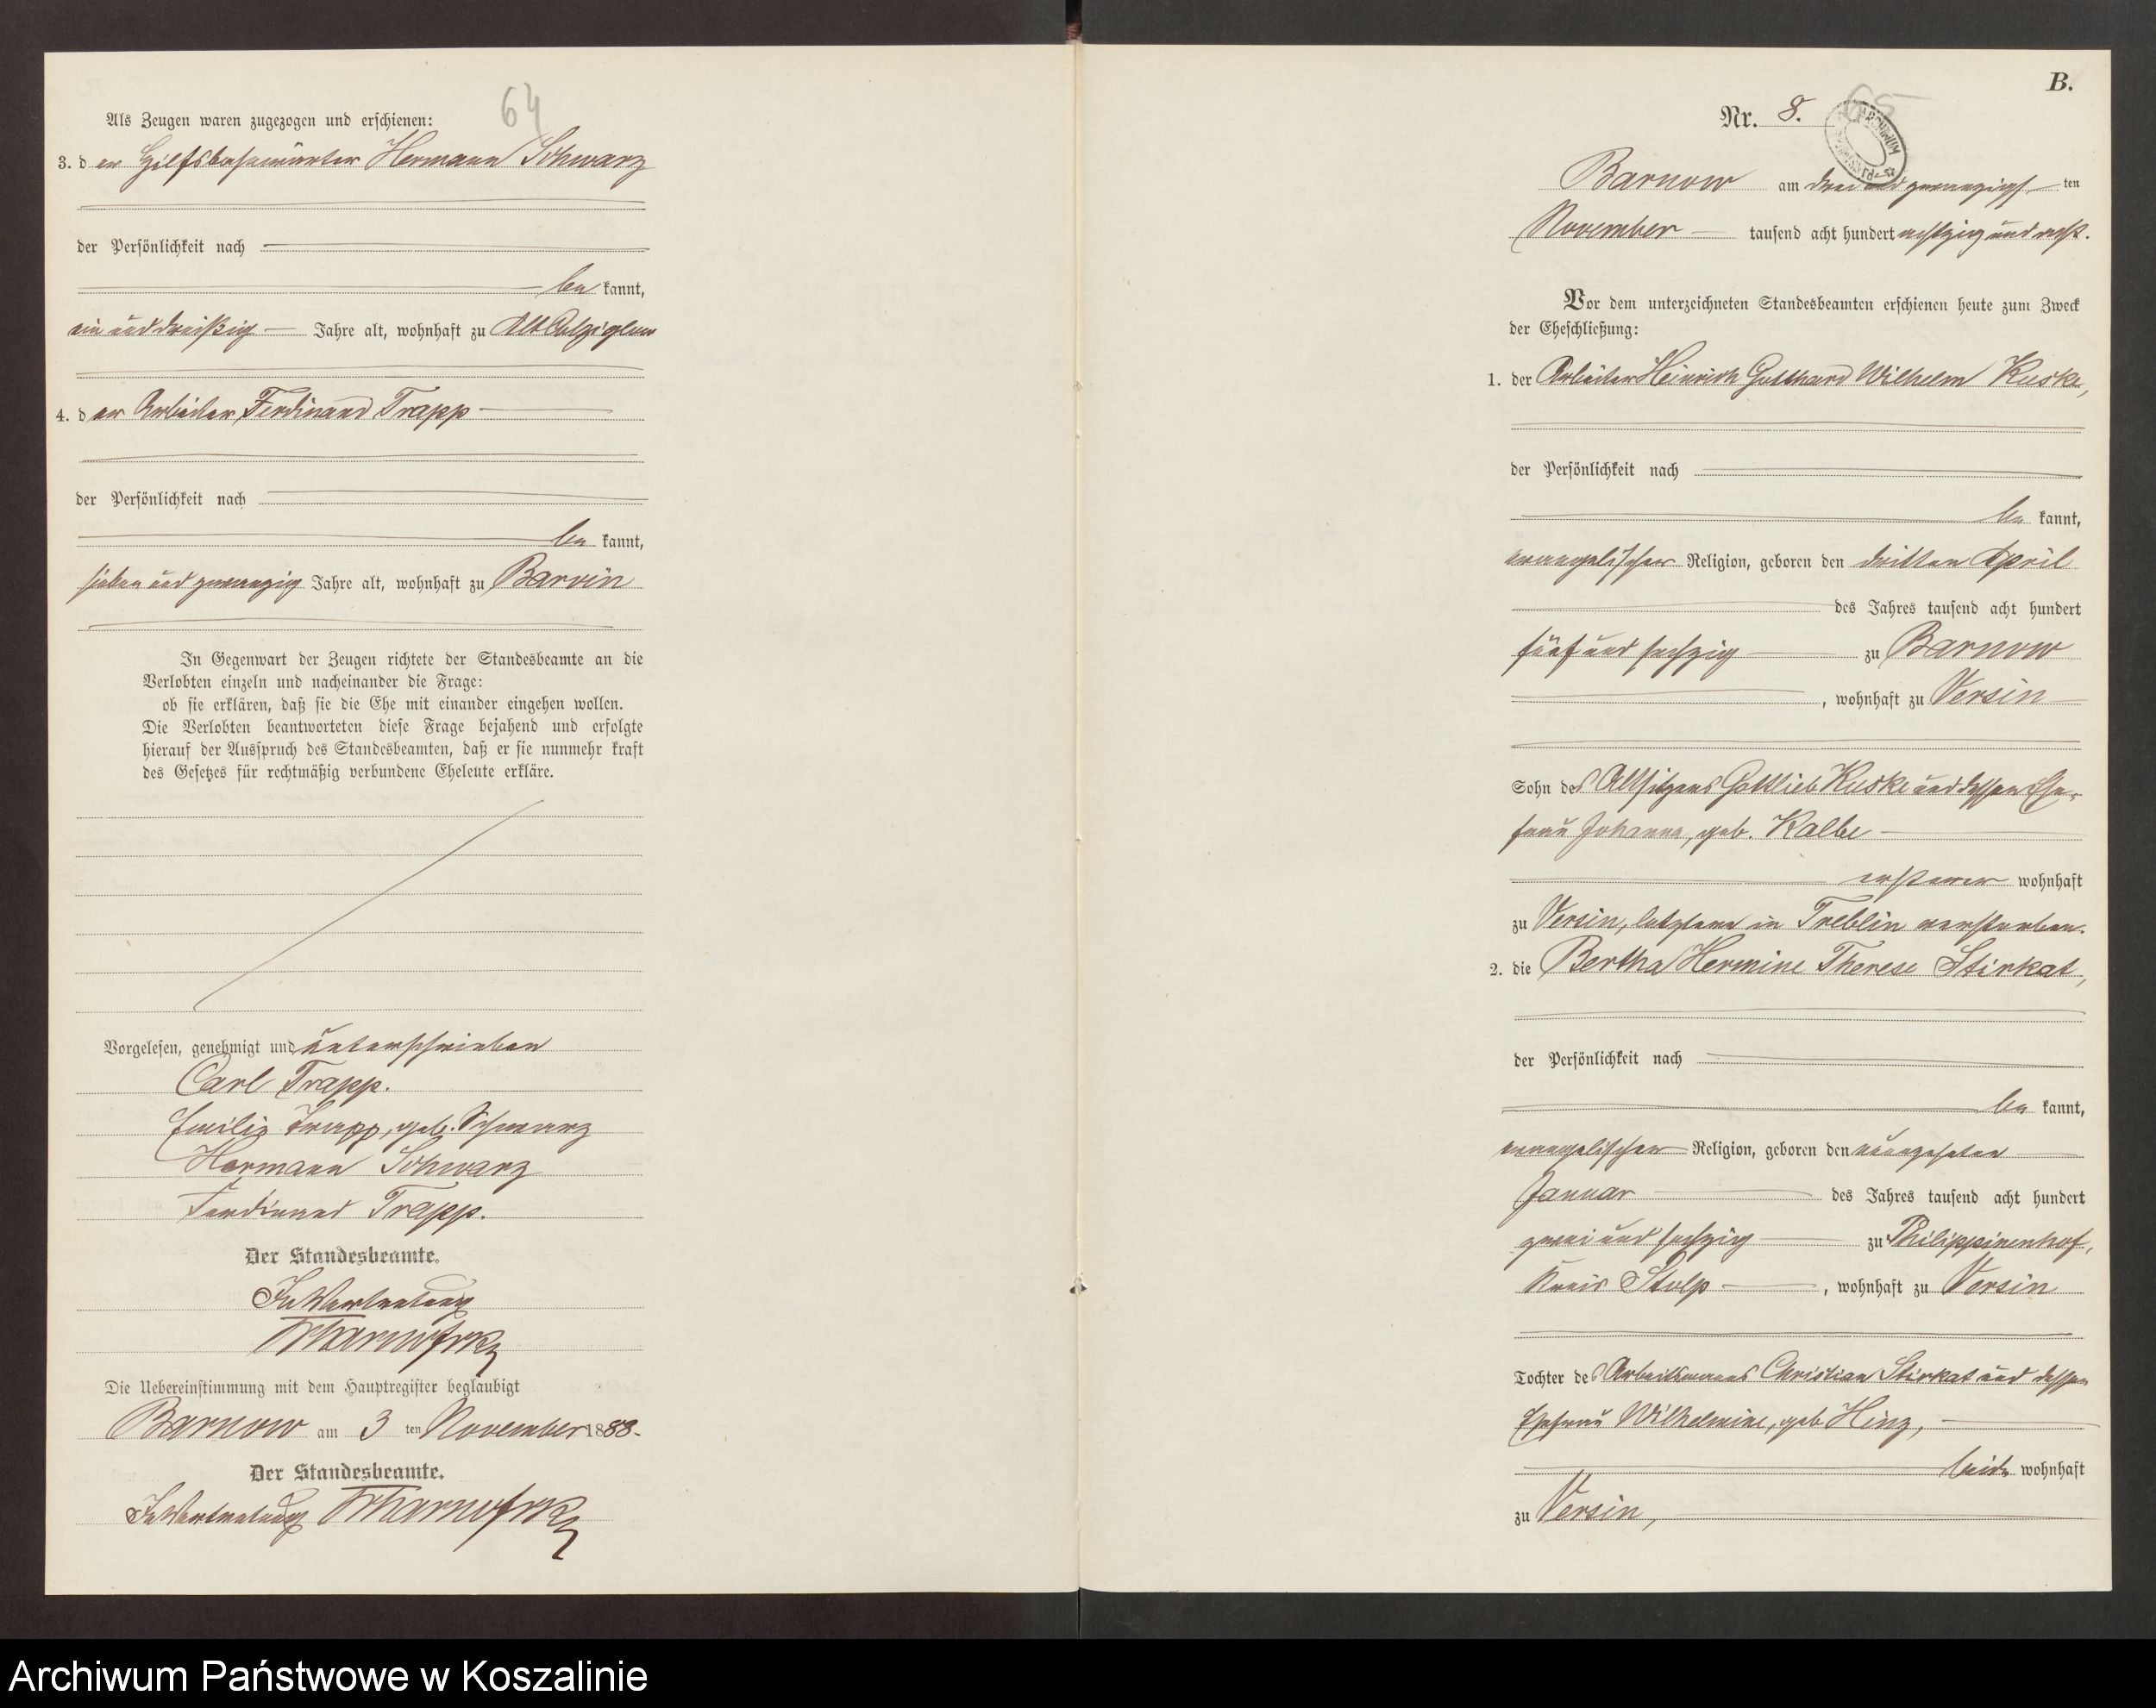 64
Als Zeugen waren zugezogen und erschienen:
3. der Hilfsbahnwärter Hermann Schwarz
der Persönlichkeit nach
be kannt,
ein und dreißig Jahre alt, wohnhaft zu Alt Colziglow
4. der Arbeiter Ferdinand Trapp
der Persönlichkeit nach
be kannt,
sieben und zwanzig Jahre alt, wohnhaft zu Barvin
In Gegenwart der Zeugen richtete der Standesbeamte an die
Verlobten einzeln und nacheinander die Frage:
ob sie erklären, daß sie die Ehe mit einander eingehen wollen.
Die Verlobten beantworteten diese Frage bejahend und erfolgte
hierauf der Ausspruch des Standesbeamten, daß er sie nunmehr kraft
des Gesetzes für rechtmäßig verbundene Eheleute erkläre.
Vorgelesen, genehmigt und unterschrieben
Carl Trapp.
Emilie Trapp, geb. Schwarz
Hermann Schwarz
Ferdinand Trapp.
Der Standesbeamte.
In Vertretung
Die Uebereinstimmung mit dem Hauptregister beglaubigt
Barnow am 3 ten November 1888.
Der Standesbeamte.
In Vertretung
B.
65
Nr. 8.
Barnow am drei und zwanzigs ten
November tausend acht hundert achtzig und acht.
Vor dem unterzeichneten Standesbeamten erschienen heute zum Zweck
der Eheschließung:
1. der Arbeiter Heinrich Gotthard Wilhelm Kuske,
der Persönlichkeit nach
be kannt,
evangelischer Religion, geboren den dritten April
des Jahres tausend acht hundert
fünf und sechzig zu Barnow
, wohnhaft zu Versin
Sohn des Altsitzers Gottlieb Kuske und dessen Ehe-
frau Johanna, geb. Kalbe
ersterer wohnhaft
zu Versin, letztere in Treblin verstorben.
2. die Bertha Hermine Therese Stirkat,
der Persönlichkeit nach
be kannt,
evangelischer Religion, geboren den neunzehnten
Januar des Jahres tausend acht hundert
zwei und sechzig zu Philippinenhof,
Kreis Stolp, wohnhaft zu Versin
Tochter des Arbeitsmanns Christian Stirkat und dessen
Ehefrau Wilhelmine, geb. Hinz,
beide wohnhaft
zu Versin,
Archiwum Państwowe w Koszalinie